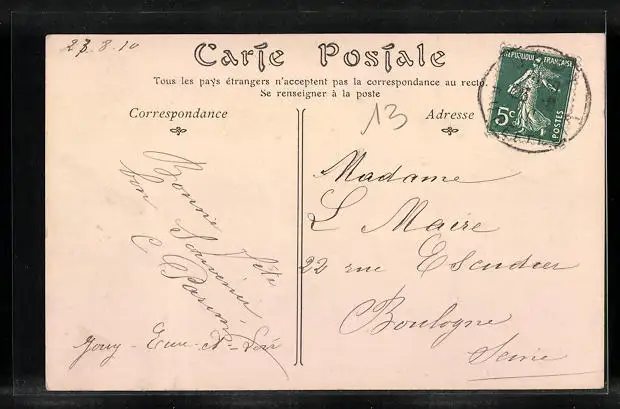 27.8.10
Carte Postale
Tous les pays étrangers n'acceptent pas la correspondance au recto.
Se renseigner à la poste
Correspondance
Adresse
13
REPUBLIQUE FRANÇAISE
5c
POSTES
Bonne fête
bon Souvenir
Jouy - Eure-et-Loir
Madame
L Maire
22 rue Escudier
Boulogne
Seine